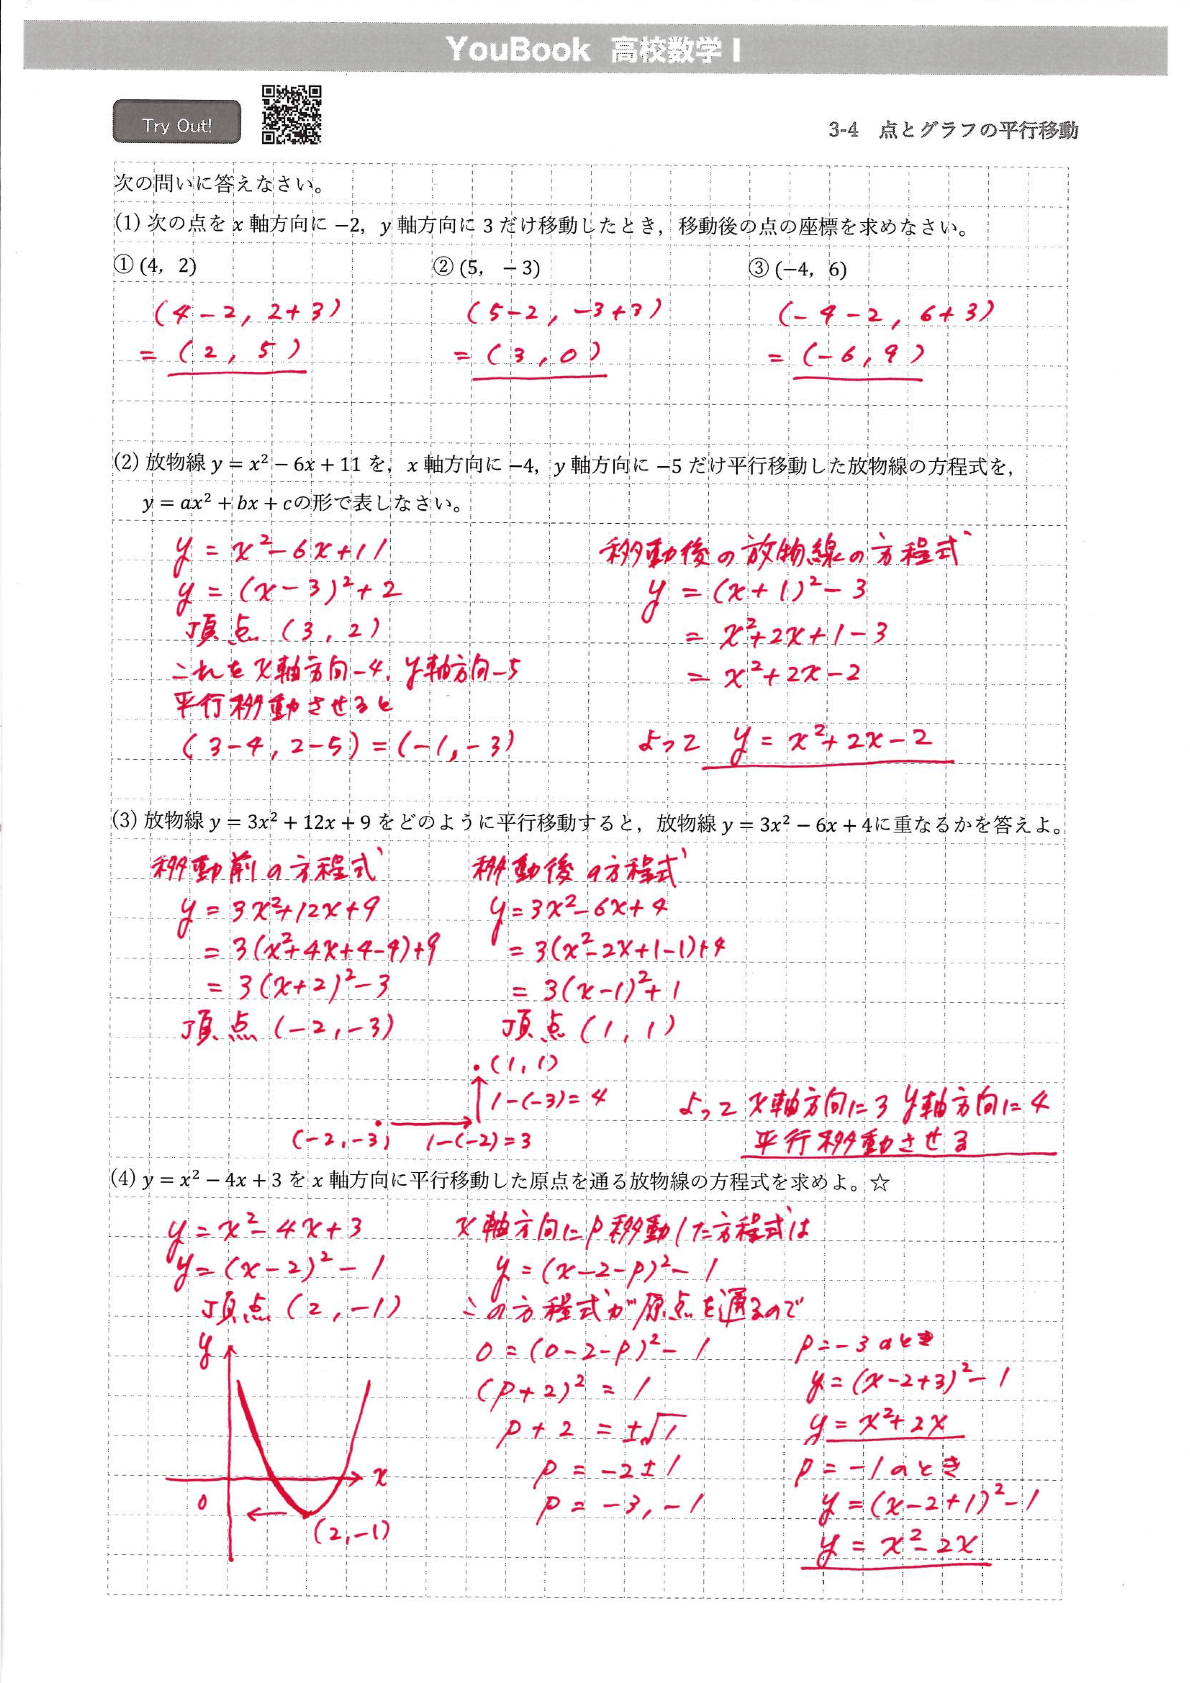 YouBook 高校数学 I
Try Out!
3-4 点とグラフの平行移動
次の問いに答えなさい。
(1) 次の点を x 軸方向に −2, y 軸方向に 3 だけ移動したとき, 移動後の点の座標を求めなさい。
① (4, 2) ② (5, −3) ③ (−4, 6)
(4−2, 2+3) (5−2, −3+3) (−4−2, 6+3)
= (2, 5) = (3, 0) = (−6, 9)
(2) 放物線 y = x² − 6x + 11 を, x 軸方向に −4, y 軸方向に −5 だけ平行移動した放物線の方程式を,
y = ax² + bx + c の形で表しなさい。
y = x²−6x+11
y = (x−3)²+2
頂点 (3, 2)
これを x軸方向−4, y軸方向−5
平行移動させると
(3−4, 2−5) = (−1, −3)
移動後の放物線の方程式
y = (x+1)²−3
= x²+2x+1−3
= x²+2x−2
よって y = x²+2x−2
(3) 放物線 y = 3x² + 12x + 9 をどのように平行移動すると, 放物線 y = 3x² − 6x + 4 に重なるかを答えよ。
移動前の方程式
y = 3x²+12x+9
= 3(x²+4x+4−4)+9
= 3(x+2)²−3
頂点 (−2, −3)
移動後の方程式
y = 3x²−6x+4
= 3(x²−2x+1−1)+4
= 3(x−1)²+1
頂点 (1, 1)
(1, 1)
1−(−3) = 4
(−2, −3) 1−(−2) = 3
よって x軸方向に 3 y軸方向に 4
平行移動させる
(4) y = x² − 4x + 3 を x 軸方向に平行移動した原点を通る放物線の方程式を求めよ。☆
y = x²−4x+3
y = (x−2)²−1
頂点 (2, −1)
y
x
0
(2, −1)
x軸方向に p 移動した方程式は
y = (x−2−p)²−1
この方程式が原点を通るので
0 = (0−2−p)²−1
(p+2)² = 1
p+2 = ±√1
p = −2±1
p = −3, −1
p = −3 のとき
y = (x−2+3)²−1
y = x²+2x
p = −1 のとき
y = (x−2+1)²−1
y = x²−2x